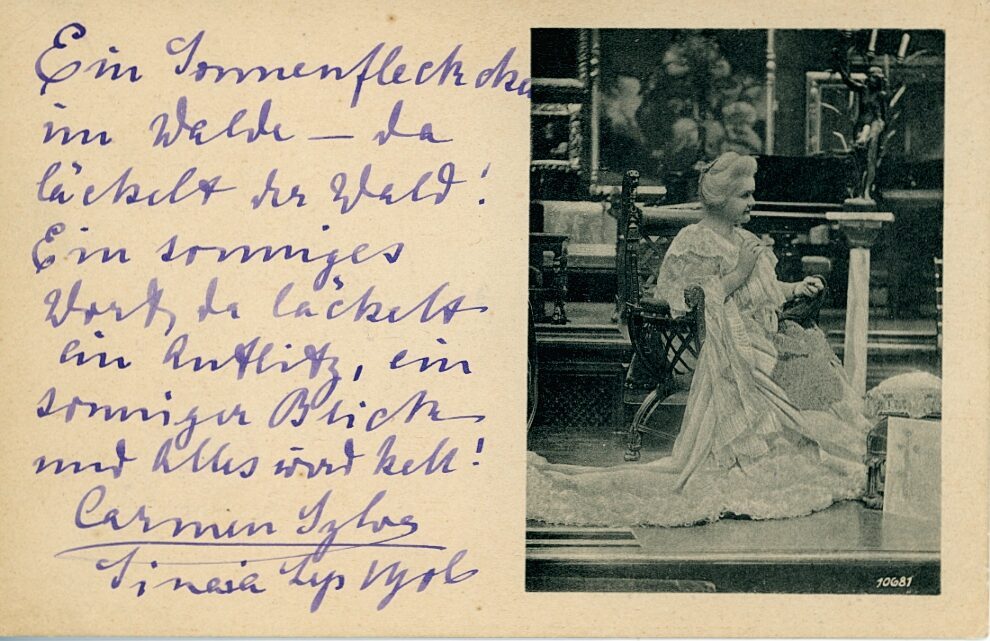 Ein Sonnenfleckche
im Walde – da
lächelt der Wald!
Ein sonniges
Wort, da lächelt
ein Antlitz, ein
sonniger Blick
und Alles wird hell!
Carmen Sylva
Sinaia Sep
10681